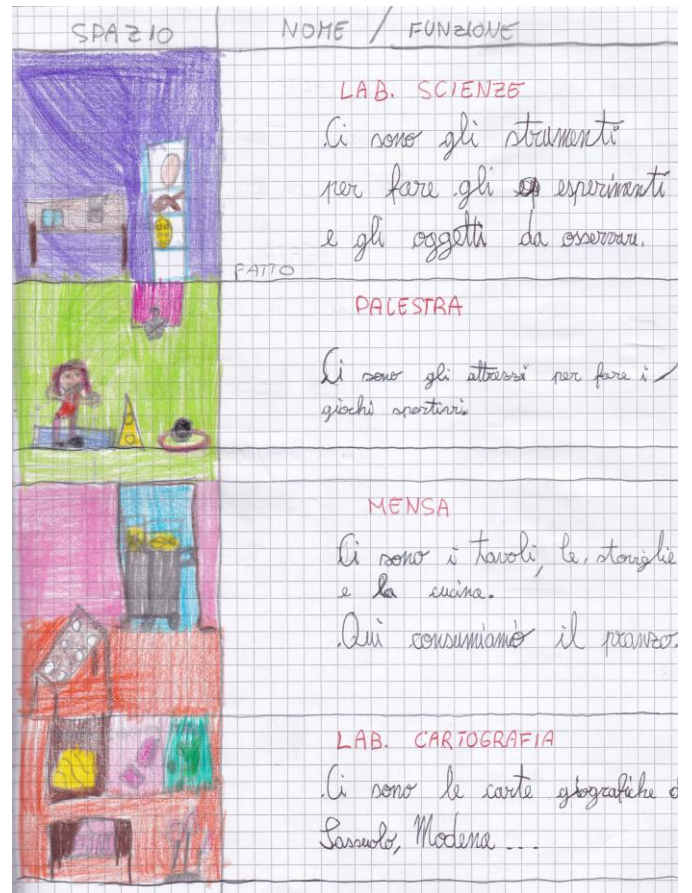 SPAZIO NOME / FUNZIONE
LAB. SCIENZE
Ci sono gli strumenti
per fare gli esperimenti
e gli oggetti da osservare.
FATTO
PALESTRA
Ci sono gli attrezzi per fare i
giochi sportivi.
MENSA
Ci sono i tavoli, le stoviglie
e la cucina.
Qui consumiamo il pranzo.
LAB. CARTOGRAFIA
Ci sono le carte giografiche d
Sassuolo, Modena ...